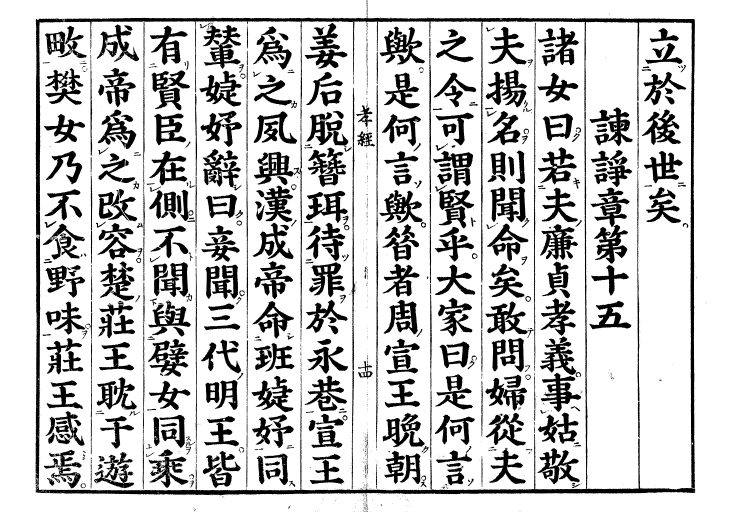 立於後世矣
諫諍章第十五
諸女曰若夫廉貞孝義事姑敬
夫揚名則聞命矣敢問婦從夫
之令可謂賢乎大家曰是何言
歟是何言歟昝者周宣王晚朝
孝經
十四
姜后脫簪珥待罪於永巷宣王
爲之夙興漢成帝命班婕妤同
輦婕妤辭曰妾聞三代明王皆
有賢臣在側不聞與嬖女同乘
成帝爲之改容楚莊王耽于遊
畋樊女乃不食野味莊王感焉